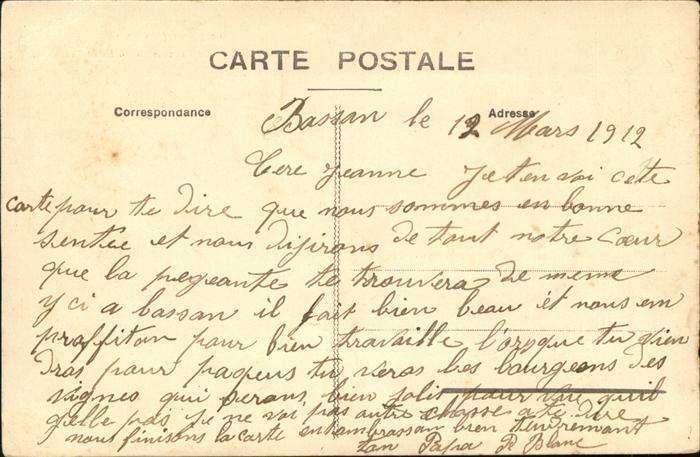 CARTE POSTALE
Correspondance
Adresse
Bassan le 12 Mars 1912
Cere jeanne Je ten voi cete
carte pour te dire que nous sommes en bonne
sentée et nous disirons de tout notre Cœur
que la pegeante te trouvera de meme
yci a bassan il fait bien beau et nous em
proffiton pour bien travaille l'orsque tu vien
dras pour paques tu veras les bourgeons des
vignes qui serons bien jolit pour vu quil
gelle pas je ne voi pas autre chosse a te dire
nous finisons la carte en tambrassan bien tendremant
ton Papa P Blanc